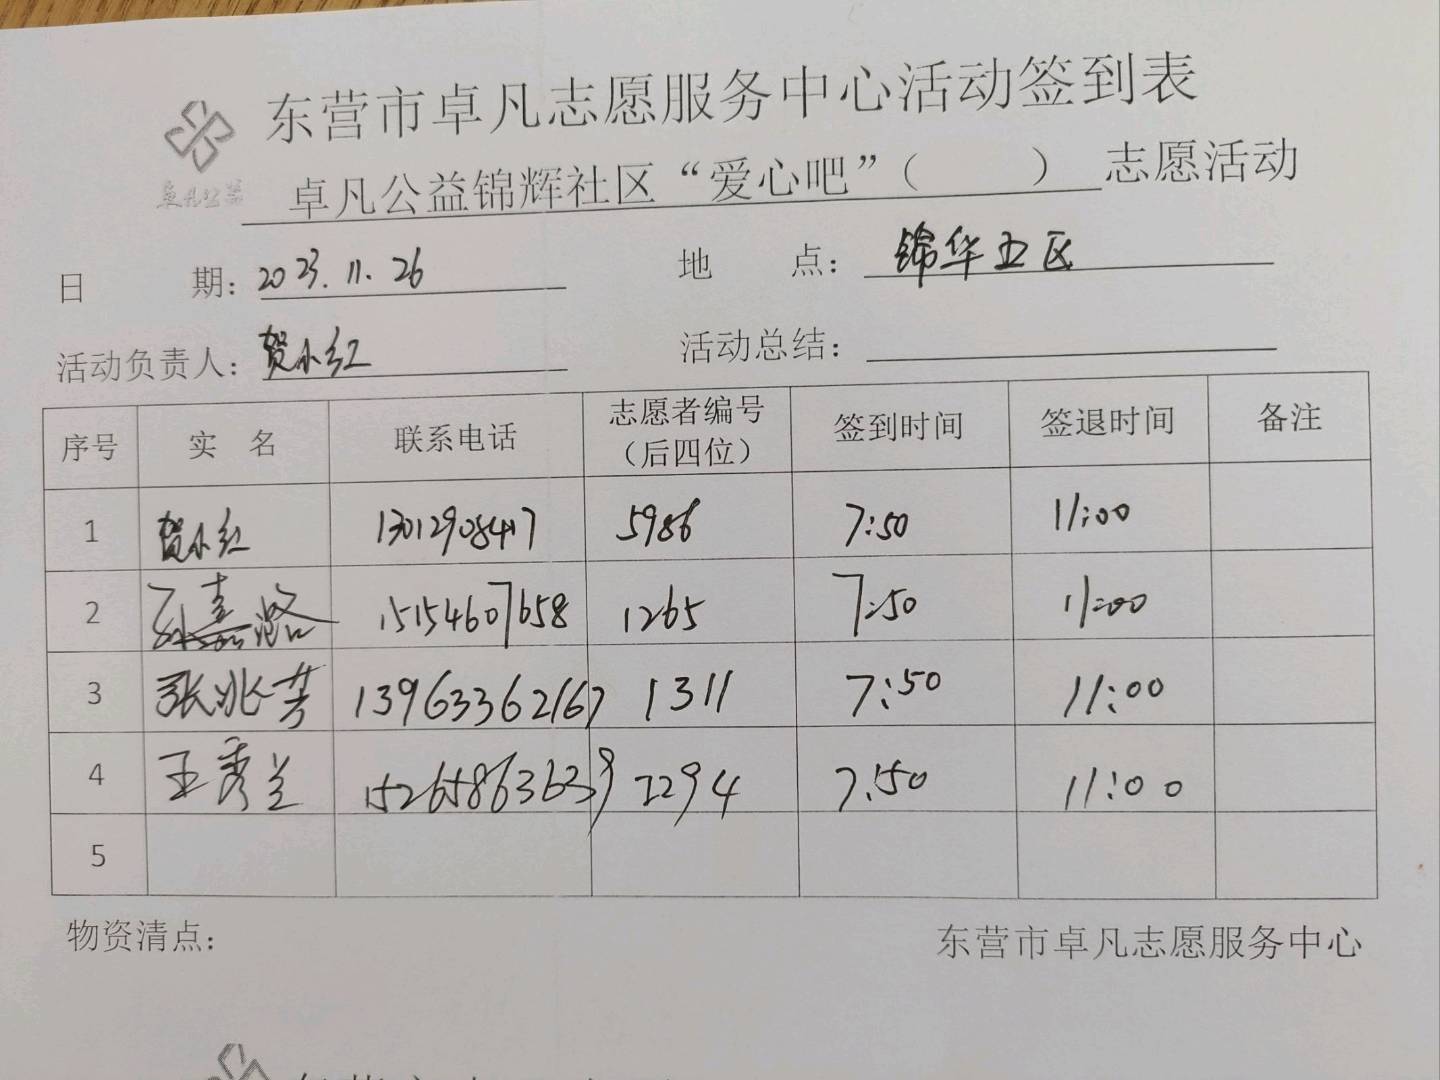 东营市卓凡志愿服务中心活动签到表
卓凡公益
卓凡公益锦辉社区“爱心吧”（ ）志愿活动
日 期：2023.11.26 地 点：锦华五区
活动负责人：贺小红 活动总结：
序号 实 名 联系电话 志愿者编号（后四位） 签到时间 签退时间 备注
1 贺小红 13012908417 5986 7:50 11:00
2 孙嘉潞 15154607658 1265 7:50 11:00
3 张兆芳 13963362167 1311 7:50 11:00
4 王秀兰 15265863639 2294 7:50 11:00
5
物资清点： 东营市卓凡志愿服务中心